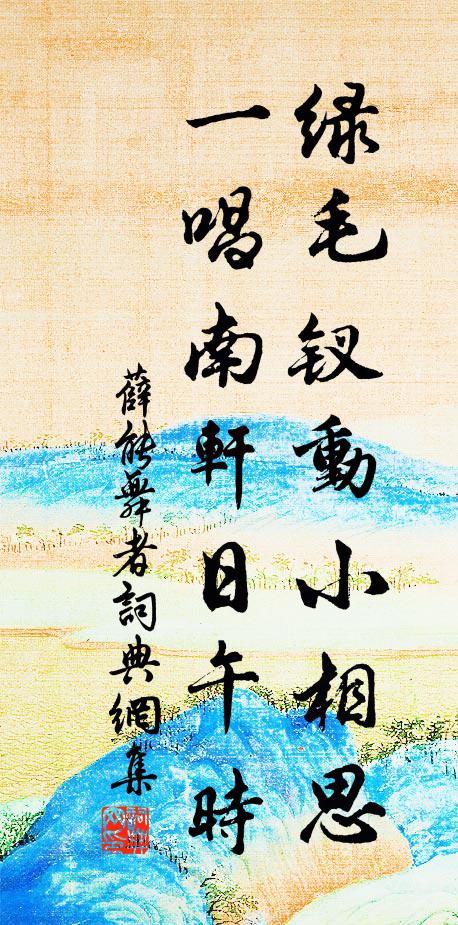 绿毛钗動小相思
一唱南軒日午時
薛能舞者詞典網集